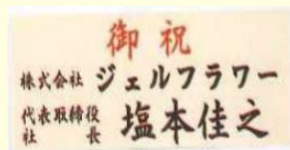 御祝
株式会社 ジェルフラワー
代表取締役社長 塩本佳之